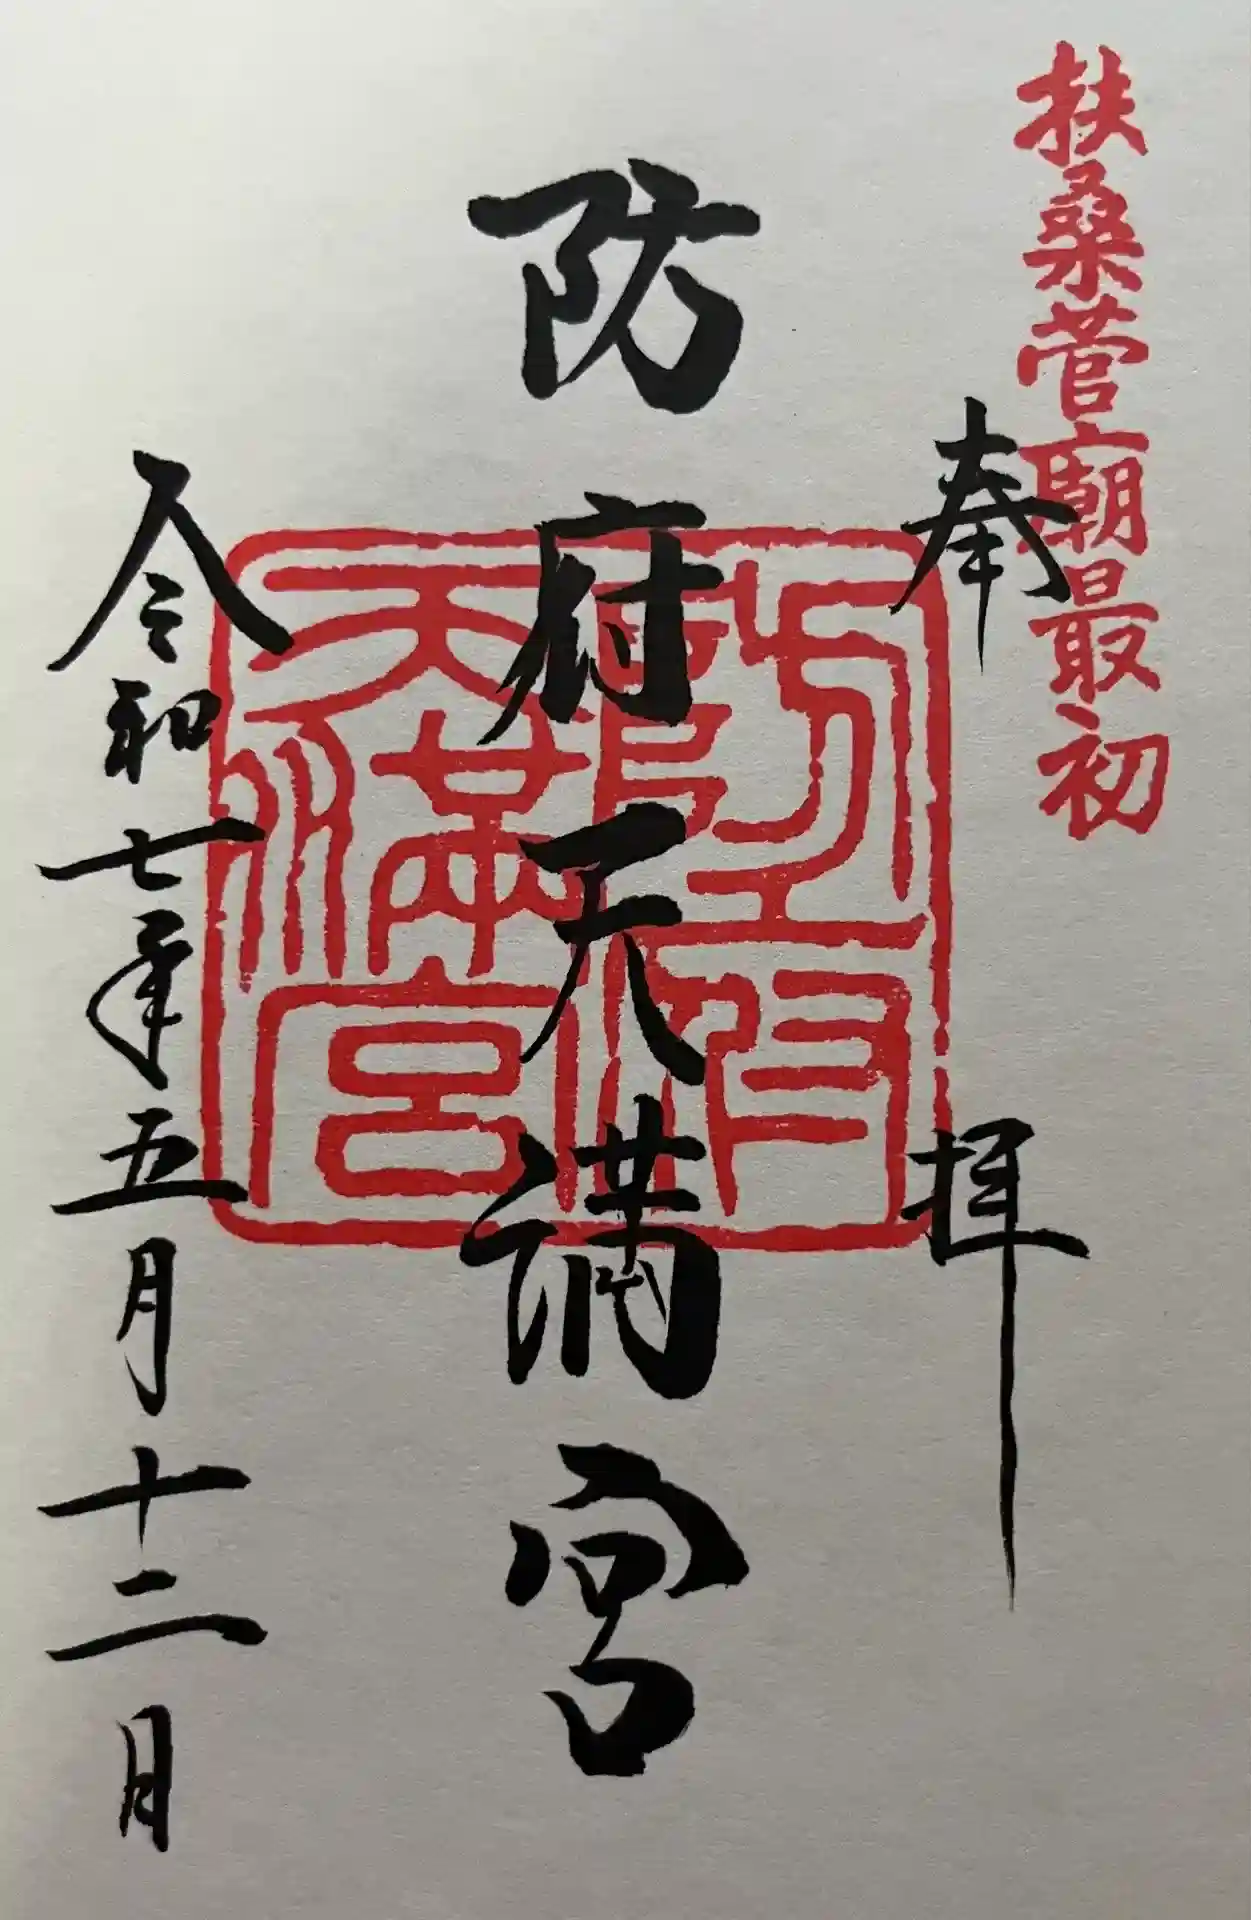 扶桑菅廟最初
奉拝
防府天満宮
令和七年五月十二日